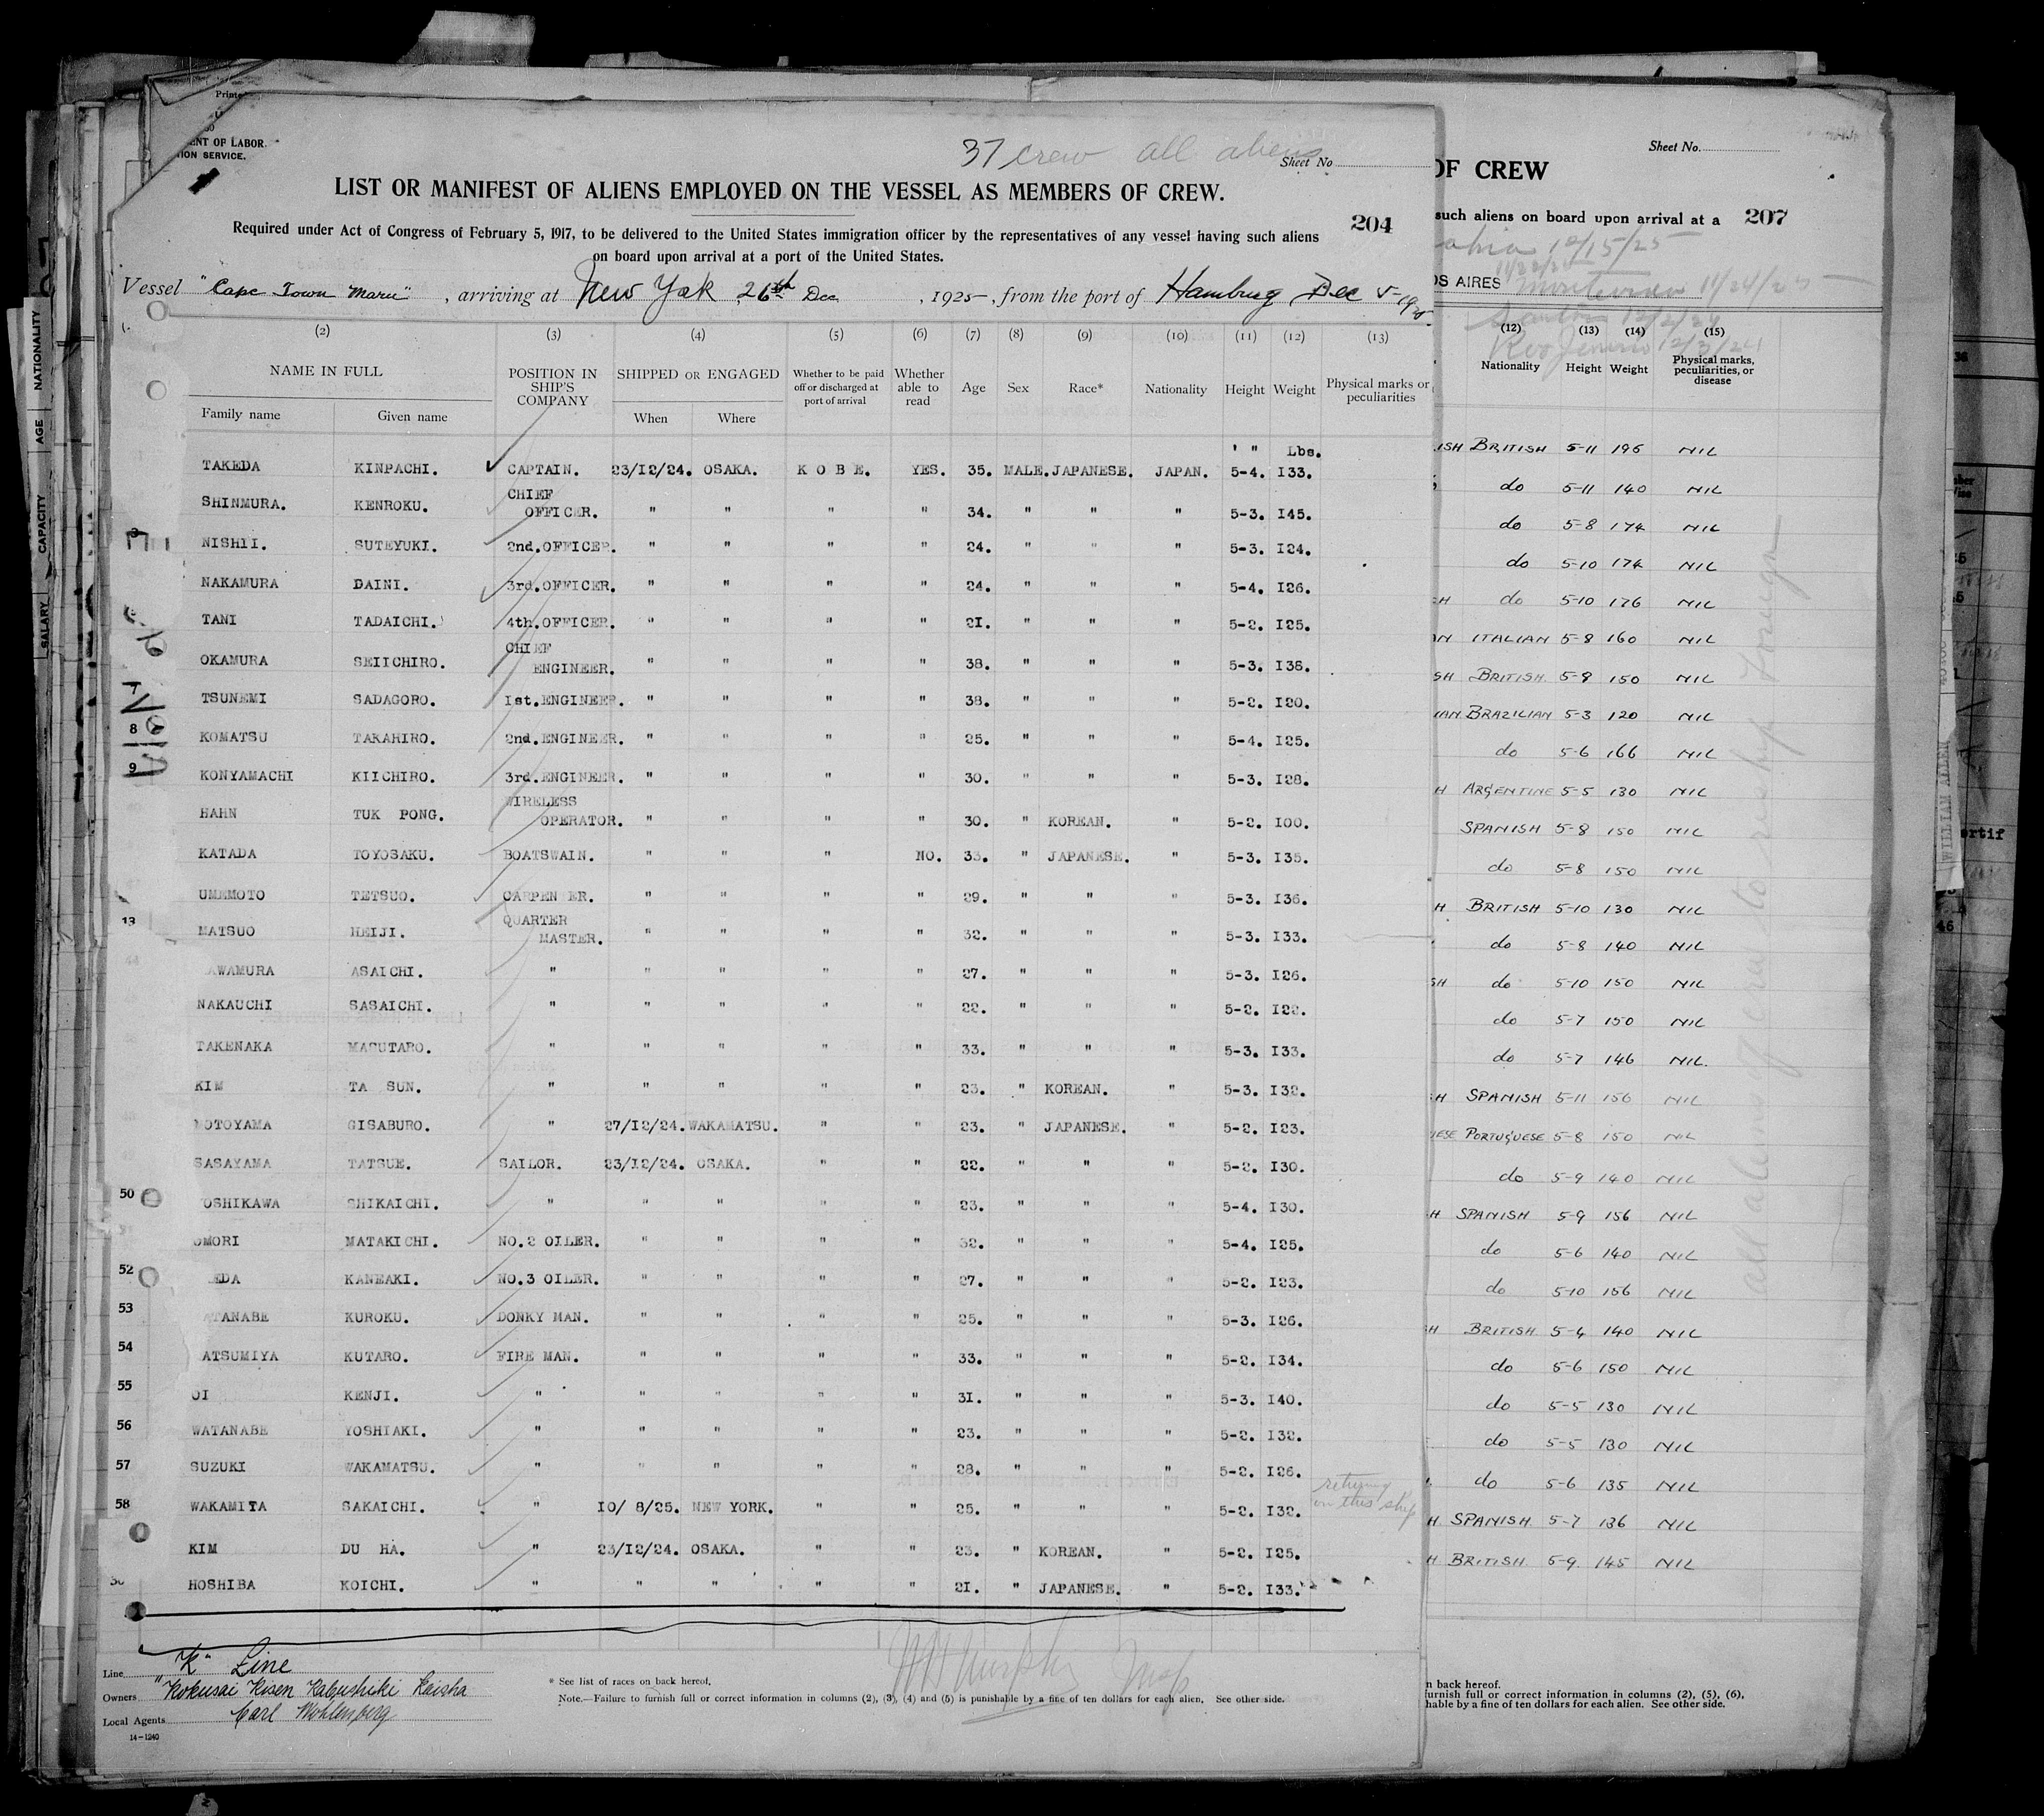 Printe
ENT OF LABOR.
TION SERVICE.
37 crew all aliens
Sheet No
LIST OR MANIFEST OF ALIENS EMPLOYED ON THE VESSEL AS MEMBERS OF CREW.
204
Required under Act of Congress of February 5, 1917, to be delivered to the United States immigration officer by the representatives of any vessel having such aliens
on board upon arrival at a port of the United States.
Vessel "Cape Town Maru", arriving at New York 26th Dec, 1925, from the port of Hamburg Dec 5-1925
(2) (3) (4) (5) (6) (7) (8) (9) (10) (11) (12) (13)
NAME IN FULL POSITION IN SHIP'S COMPANY SHIPPED OR ENGAGED Whether to be paid off or discharged at port of arrival Whether able to read Age Sex Race* Nationality Height Weight Physical marks or peculiarities
Family name Given name When Where
' " Lbs.
TAKEDA KINPACHI. CAPTAIN. 23/12/24. OSAKA. K O B E. YES. 35. MALE. JAPANESE. JAPAN. 5-4. I33.
SHINMURA. KENROKU. CHIEF OFFICER. " " " " 34. " " " 5-3. I45.
NISHII. SUTEYUKI. 2nd.OFFICER. " " " " 24. " " " 5-3. I24.
NAKAMURA DAINI. 3rd.OFFICER. " " " " 24. " " " 5-4. I26.
TANI TADAICHI. 4th.OFFICER. " " " " 2I. " " " 5-2. I25.
OKAMURA SEIICHIRO. CHIEF ENGINEER. " " " " 38. " " " 5-3. I38.
TSUNEMI SADAGORO. Ist.ENGINEER. " " " " 38. " " " 5-2. I20.
8 KOMATSU TAKAHIRO. 2nd.ENGINEER. " " " " 25. " " " 5-4. I25.
9 KONYAMACHI KIICHIRO. 3rd.ENGINEER. " " " " 30. " " " 5-3. I28.
HAHN TUK PONG. WIRELESS OPERATOR. " " " " 30. " KOREAN. " 5-2. I00.
KATADA TOYOSAKU. BOATSWAIN. " " " NO. 33. " JAPANESE. " 5-3. I35.
UMEMOTO TETSUO. CARPENTER. " " " " 29. " " " 5-3. I36.
13 MATSUO HEIJI. QUARTER MASTER. " " " " 32. " " " 5-3. I33.
AWAMURA ASAICHI. " " " " " 27. " " " 5-3. I26.
NAKAUCHI SASAICHI. " " " " " 22. " " " 5-2. I22.
TAKENAKA MASUTARO. " " " " " 33. " " " 5-3. I33.
KIM TA SUN. " " " " " 23. " KOREAN. " 5-3. I32.
MOTOYAMA GISABURO. " 27/12/24. WAKAMATSU. " " 23. " JAPANESE. " 5-2. I23.
SASAYAMA TATSUE. SAILOR. 23/12/24. OSAKA. " " 22. " " " 5-2. I30.
50 OSHIKAWA SHIKAICHI. " " " " " 23. " " " 5-4. I30.
OMORI MATAKICHI. NO.2 OILER. " " " " 32. " " " 5-4. I25.
52 EDA KANEAKI. NO.3 OILER. " " " " 27. " " " 5-2. I23.
53 ATANABE KUROKU. DONKY MAN. " " " " 25. " " " 5-3. I26.
54 ATSUMIYA KUTARO. FIRE MAN. " " " " 33. " " " 5-2. I34.
55 OI KENJI. " " " " " 3I. " " " 5-3. I40.
56 WATANABE YOSHIAKI. " " " " " 23. " " " 5-2. I32.
57 SUZUKI WAKAMATSU. " " " " " 28. " " " 5-2. I26.
58 WAKAMITA SAKAICHI. " I0/ 8/25. NEW YORK. " " 25. " " " 5-2. I32. returning on this ship
KIM DU HA. " 23/12/24. OSAKA. " " 23. " KOREAN. " 5-2. I25.
HOSHIBA KOICHI. " " " " " 2I. " JAPANESE. " 5-2. I33.
Line "K" Line
Owners "Kokusai Kisen Kabushiki Kaisha
Local Agents Carl Wohlenberg
14-1240
* See list of races on back hereof.
Note.—Failure to furnish full or correct information in columns (2), (3), (4) and (5) is punishable by a fine of ten dollars for each alien. See other side.
Murphy Insp
Sheet No.
OF CREW
such aliens on board upon arrival at a 207
12/15/25
OS AIRES Montevideo 11/24/25
Santos 12/2/24
Rio Jeneiro 12/3/24
(12) (13) (14) (15)
Nationality Height Weight Physical marks, peculiarities, or disease
ISH BRITISH 5-11 196 NIL
do 5-11 140 NIL
do 5-8 174 NIL
do 5-10 174 NIL
SH do 5-10 176 NIL
AN ITALIAN 5-8 160 NIL
SH BRITISH 5-9 150 NIL
IAN BRAZILIAN 5-3 120 NIL
do 5-6 166 NIL
H ARGENTINE 5-5 130 NIL
SPANISH 5-8 150 NIL
do 5-8 150 NIL
H BRITISH 5-10 130 NIL
do 5-8 140 NIL
SH do 5-10 150 NIL
do 5-7 150 NIL
do 5-7 146 NIL.
H SPANISH 5-11 156 NIL
ESE PORTUGUESE 5-8 150 NIL
do 5-9 140 NIL
H SPANISH 5-9 156 NIL
do 5-6 140 NIL
do 5-10 156 NIL
H BRITISH 5-4 140 NIL
do 5-6 150 NIL
do 5-5 130 NIL
do 5-5 130 NIL
do 5-6 135 NIL
H. SPANISH. 5-7 136 NIL
H BRITISH. 5-9. 145 NIL
n back hereof.
furnish full or correct information in columns (2), (5), (6),
hable by a fine of ten dollars for each alien. See other side.
NATIONALITY
AGE
CAPACITY
SALARY